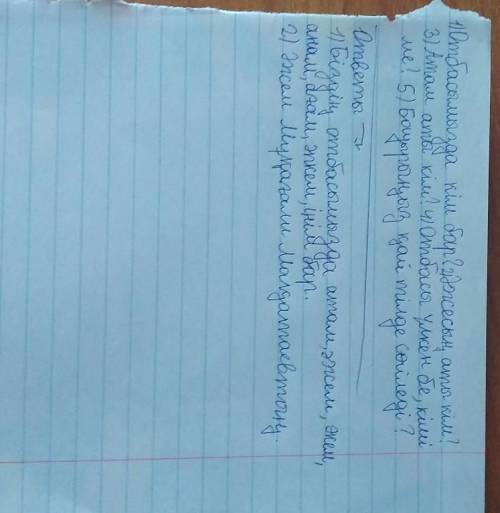 1) Отбасымызда кім бар? 2) Әжесың аты кім?
3) Атам аты кім? 4) Отбасы үлкен бе, кіші
ме? 5) Бауырыңыз қай тілде сөйледі?
Ответы →
1) Біздің отбасымызда атам, әжем, әкем,
анам, ағам, әпкем, інім бар.
2) Әжем Мұқағали Мақатаевтың